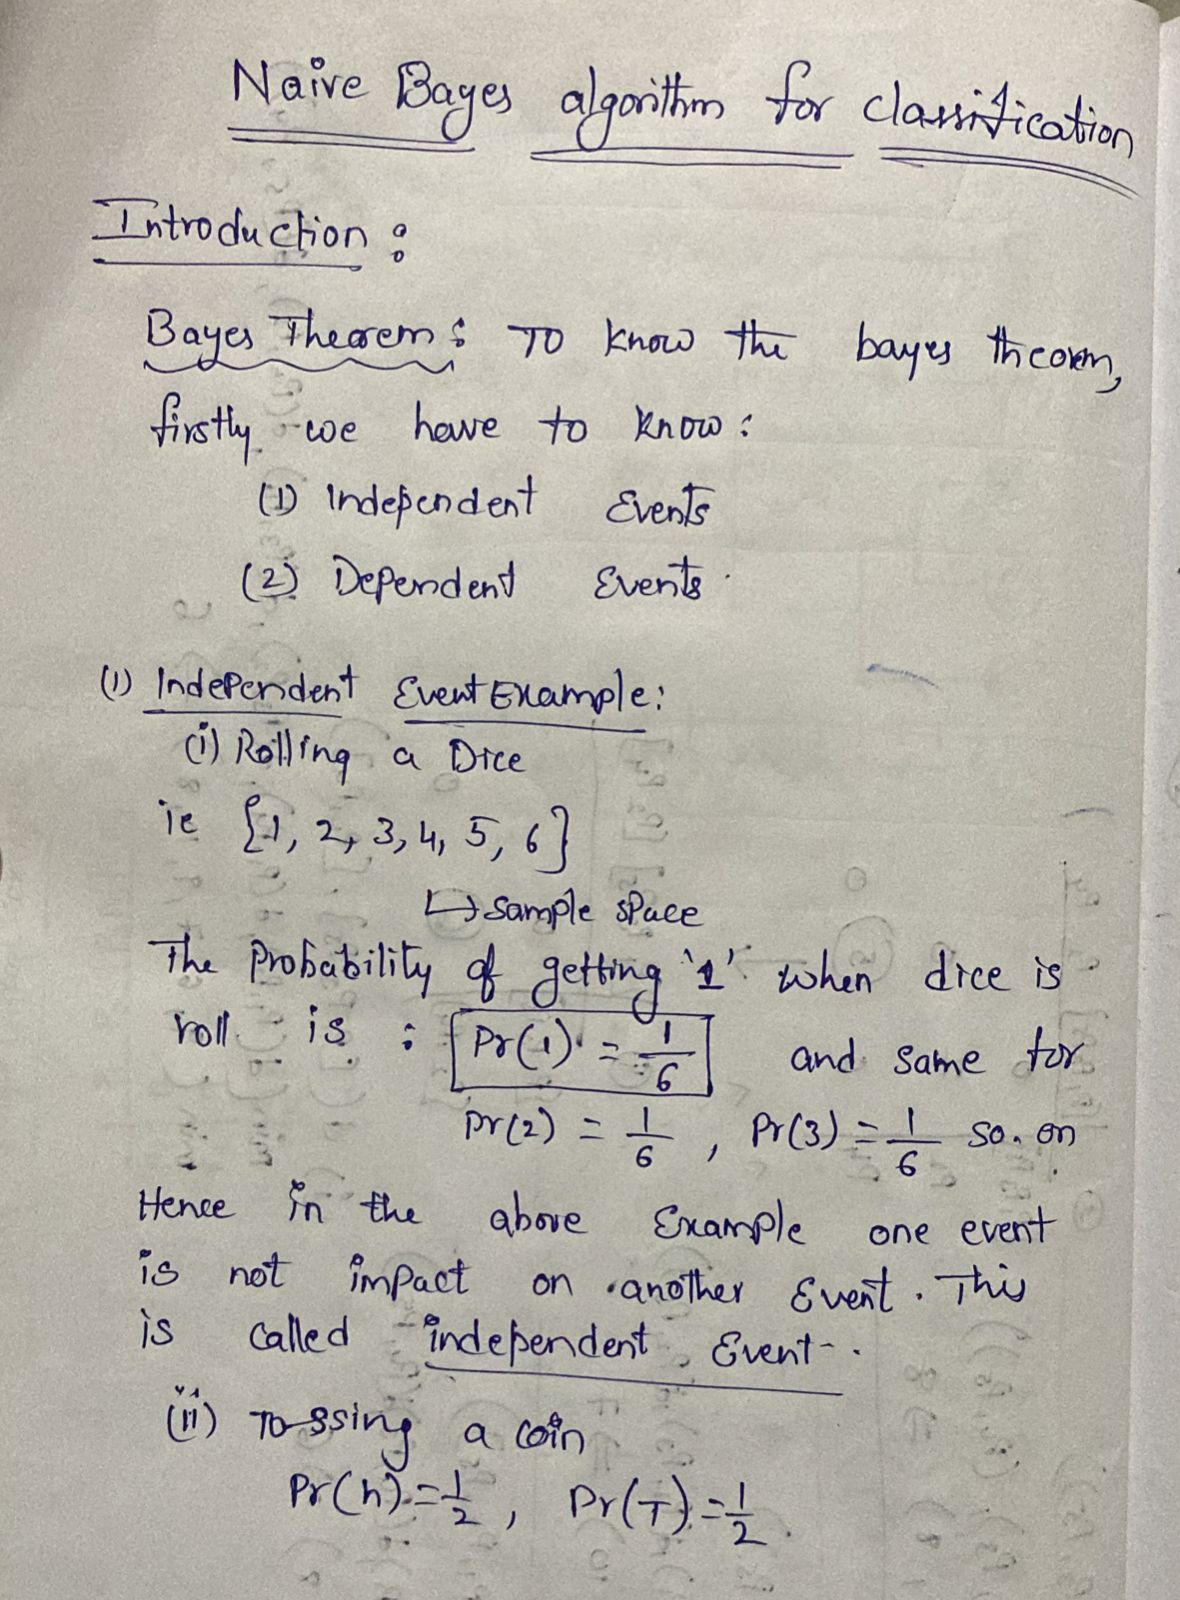 Naive Bayes algorithm for classification
Introduction :
Bayes Theorem : To know the bayes theorm,
firstly we have to know :
(1) Independent Events
(2) Dependent Events.
(1) Independent Event Example :
(i) Rolling a Dice
ie {1, 2, 3, 4, 5, 6}
↳ sample space
The Probability of getting '1' when dice is
roll is : Pr(1) = 1/6 and same for
Pr(2) = 1/6 , Pr(3) = 1/6 so on
Hence in the above Example one event
is not impact on another Event. This
is called independent Event.
(ii) Tossing a coin
Pr(h) = 1/2 , Pr(T) = 1/2.